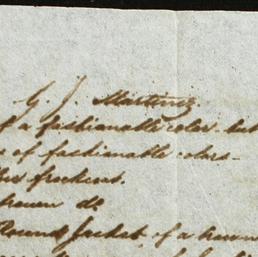 G. J. Martinez.
of a fashionable color. but
of fashionable colors-
frockcoat.
brown do
Round Jacket of a brown